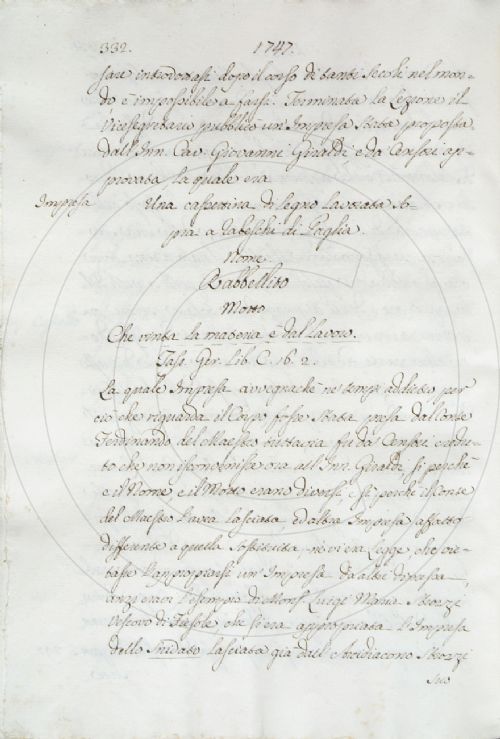 332. 1747.
sare introdottasi dopo il corso di tanti secoli nel mon-
do è impossibile a farsi. Terminata la Lezione il
Vicesegretario pubblicò un' Impresa stata proposta
dall' Inn. Cav. Giovanni Giraldi e da Censori ap-
provata la quale era
Impresa Una cassettina di legno lavorata so-
pra a rabeschi di Paglia
Nome.
Rabbellito
Motto
Che vinta la materia è dal lavoro.
Tass. Ger. Lib. C. 16. 2.
La quale Impresa avvegnachè ne' tempi addietro per
ciò che riguarda il Corpo fosse stata presa dal Conte
Ferdinando del Maestro tuttavia fu da' Censori credu-
to che non isconvenisse ora all' Inn. Giraldi sì perchè
e il Nome e il Motto erano diversi, e sì perchè il Conte
del Maestro l'avea lasciata ed altra Impresa affatto
differente a quella sostituita, nè vi era Legge, che vie-
tasse l'appropriarsi un' Impresa da altri dismessa,
anzi eravi l'esempio di Mons. Luigi Maria Strozzi
Vescovo di Fiesole che si era appropriata l'Impresa
dello Snidato lasciata già dall' Arcidiacono Strozzi
suo